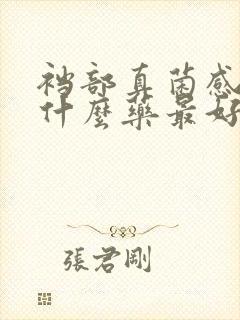 裆部真菌感
什麼藥最好
張君剛